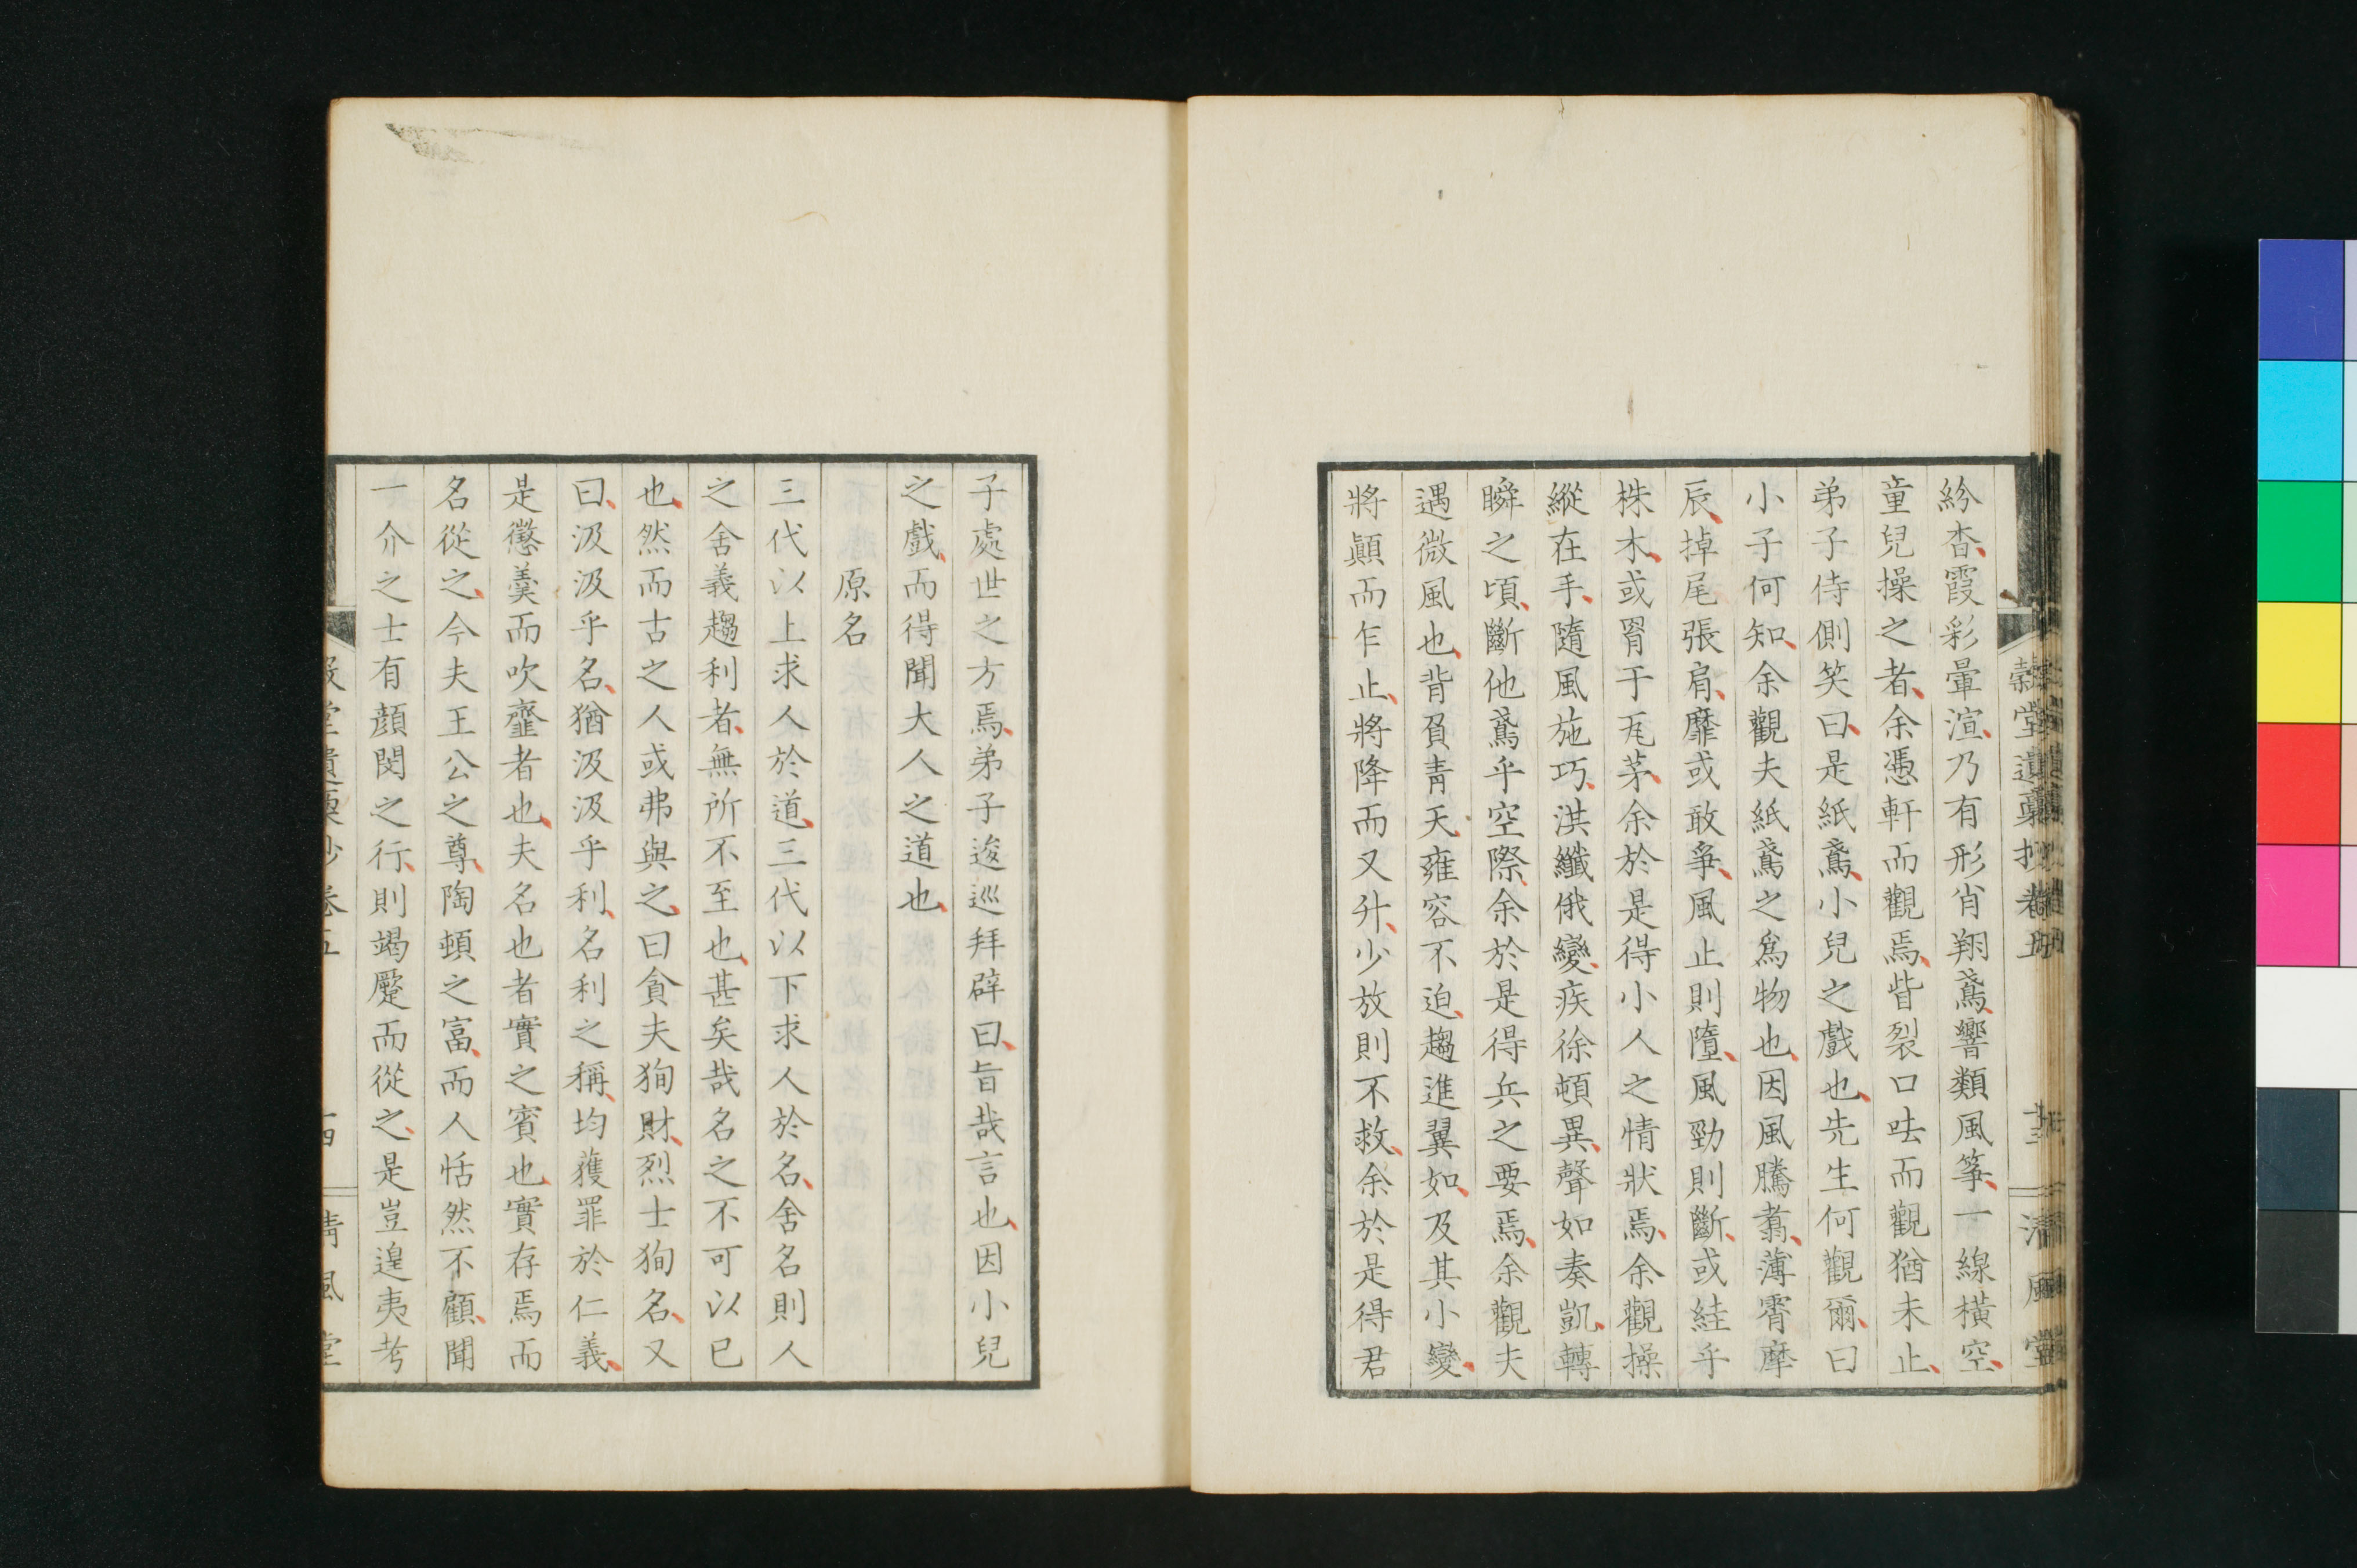 紛杳霞彩暈渲乃有形肖翔鳶響類風箏一線橫空
童兒操之者余憑軒而觀焉眥裂口呿而觀猶未止
弟子侍側笑曰是紙鳶小兒之戲也先生何觀爾曰
小子何知余觀夫紙鳶之爲物也因風騰翥薄霄摩
辰掉尾張肩靡或敢爭風止則墮風勁則斷或絓乎
株木或罥于瓦茅余於是得小人之情狀焉余觀操
縱在手隨風施巧洪纖俄變疾徐頓異聲如奏凱轉
瞬之頃斷他鳶乎空際余於是得兵之要焉余觀夫
遇微風也背負青天雍容不迫趨進翼如及其小變
將顚而乍止將降而又升少放則不救余於是得君
子處世之方焉弟子逡巡拜辟曰旨哉言也因小兒
之戲而得聞大人之道也
原名
三代以上求人於道三代以下求人於名舍名則人
之舍義趨利者無所不至也甚矣哉名之不可以已
也然而古之人或弗與之曰貪夫狥財烈士狥名又
曰汲汲乎名猶汲汲乎利名利之稱均獲罪於仁義
是懲羹而吹齏者也夫名也者實之賓也實存焉而
名從之今夫王公之尊陶頓之富而人恬然不顧聞
一介之士有顔閔之行則竭蹷而從之是豈遑夷考
穀堂遺稾抄卷五
清風堂